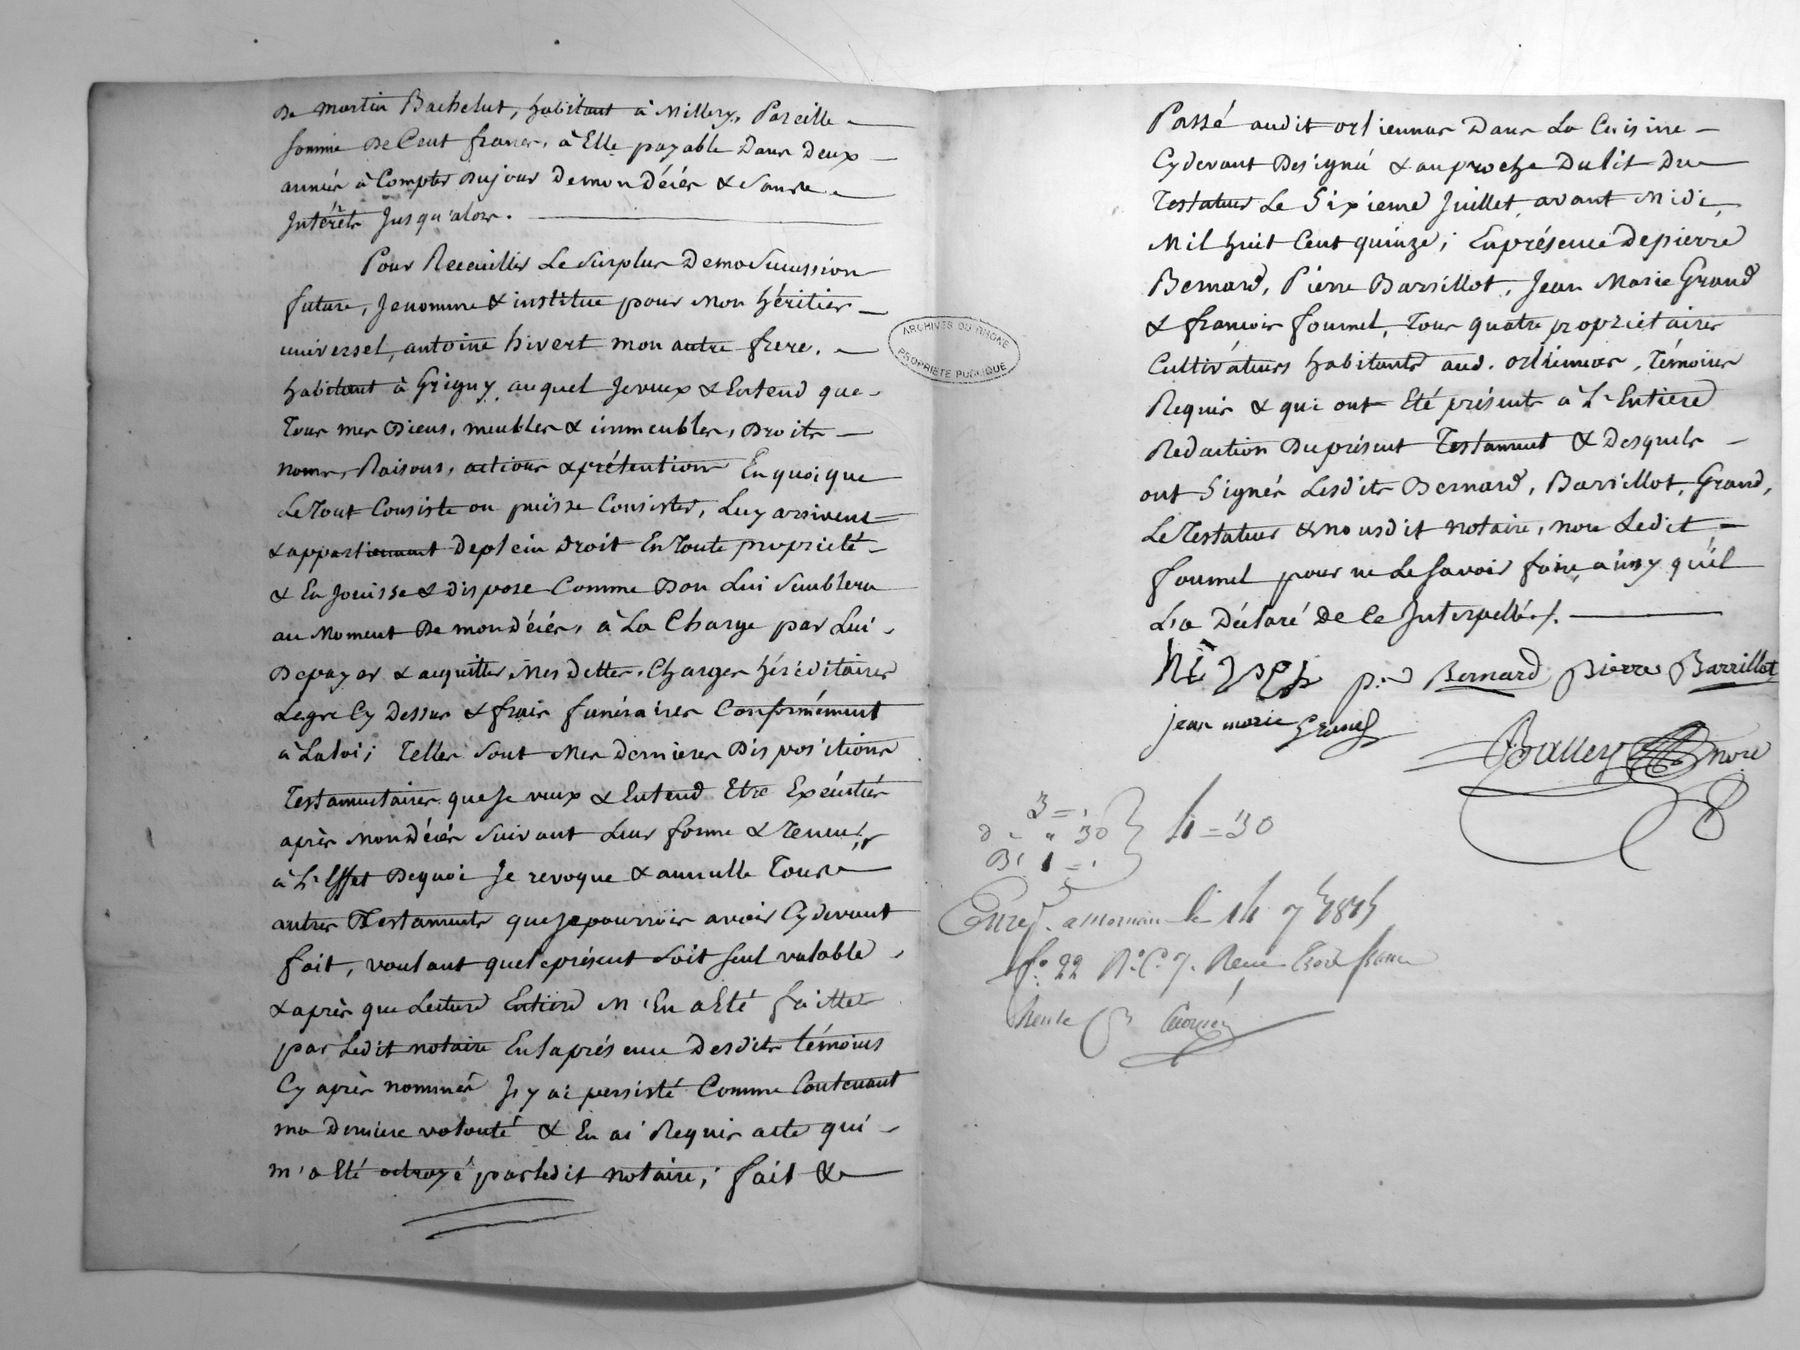 De martin Bachelut, habitant à Millery, Pareille
somme De Cent francs, à Elle payable Dans Deux
année à Compter Dujour Demon décès & Sans
Intérêts Jusqu'alors.
Pour Recueillir Le Surplus Dema Sucession
future, Jenomme & institue pour Mon héritier
universel, antoine hivert mon autre frere,
habitant à Grigny, auquel Jeveux & Entend que
Tous mes Biens, meubles & immeubles, Droits
noms, Raisons, actions & prétentions En quoi que
Le Tout Consiste ou puisse Consister, Luy arrivent
& appartiennent Deplein Droit En Toute propriété
& En Jouisse & Dispose Comme Bon Lui Semblera
au Moment De mon décès, à La Charge par Lui
Depayer & acquitter Mes Dettes, Charges héréditaires
Legs Cy Dessus & frais funéraires Conformément
à Laloi; Telles Sont Mes Dernieres Dispositions
Testamentaires que Je veux & Entend Etre Exécutés
après Mon décès Suivant Leur forme & Teneur,
à L'Effet Dequoi Je revoque & annulle Tous
autres Testaments que Je pourrois avoir Cy devant
fait, voulant que le présent Soit Seul valable
& après que Lecture Entiere M'En a Eté faitte
par Ledit notaire En la présence Desdits témoins
Cy après nommés J'y ai persisté Comme Contenant
ma Derniere volonté & En ai Requis acte qui
m'a Eté octroyé par Ledit notaire; fait &
ARCHIVES DU RHONE
PROPRIÉTÉ PUBLIQUE
Passé audit orliennas Dans La Cuisine
Cydevant Designée & auproche Dulit Du
Testateur Le Sixieme Juillet avant Midi,
Mil huit Cent quinze; En présence Depierre
Bernard, Pierre Barrillot, Jean Marie Grand
& francois fournel, Tous quatre propriétaires
Cultivateurs habitants aud. orliennas, Témoins
Requis & qui ont Eté présents à L'Entiere
Redaction Duprésent Testament & Desquels
ont Signés Lesdits Bernard, Barrillot, Grand,
Le Testateur & nousdit notaire, non Ledit
fournel pour ne Le Savoir faire, ainsy qu'il
L'a Déclaré De Ce Interpellé./.
p.re Bernard Pierre Barrillot
jean marie Grand
3 = .
d - " 30
1 = .
4 = 30
Enreg. a Mornan le 14 7 1815
f.o 22 R.o C.e 7. Recu trois francs